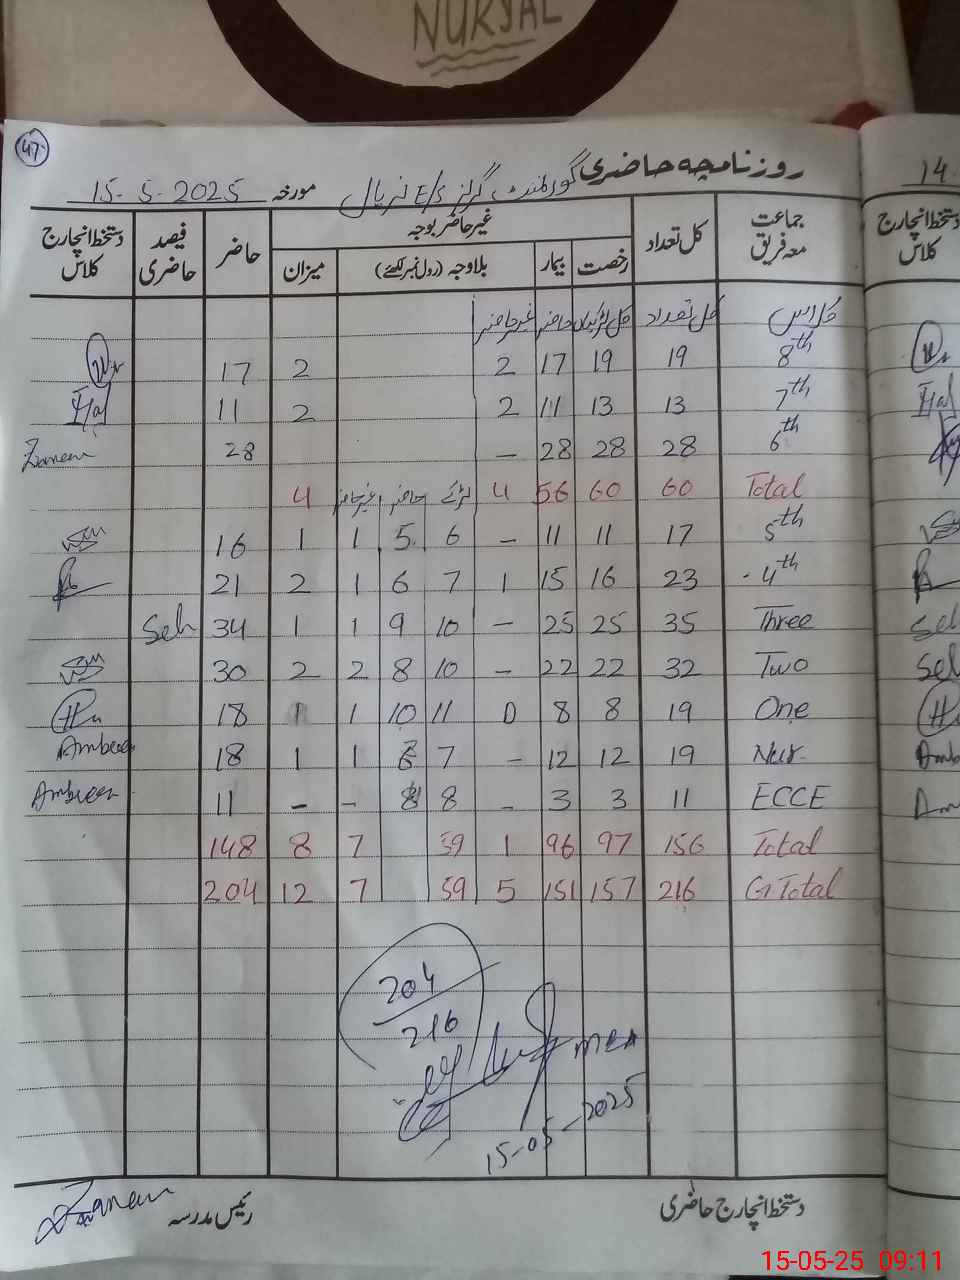 NUKYAL
47
روزنامچہ حاضری گورنمنٹ گرلز E/s نڑیال مورخہ 15-5-2025
جماعت معہ فریق کل تعداد غیر حاضر بوجہ حاضر فیصد حاضری دستخط انچارج کلاس
رخصت بیمار بلاوجہ (رول نمبر لکھئے) میزان
کلاس کل تعداد کل لڑکیاں حاضر غیر حاضر
8th 19 19 17 2 2 17
7th 13 13 11 2 2 11 Haf
6th 28 28 28 – 28 Zaneem
Total 60 60 56 4 لڑکے حاضر غیر حاضر 4
5th 17 11 11 – 6 5 1 1 16
4th 23 16 15 1 7 6 1 2 21
Three 35 25 25 – 10 9 1 1 34 Seh
Two 32 22 22 – 10 8 2 2 30
One 19 8 8 0 11 10 1 1 18
Nur. 19 12 12 – 7 6 1 1 18 Ambreen
ECCE 11 3 3 – 8 8 – – 11 Ambreen
Total 156 97 96 1 59 7 8 148
G.Total 216 157 151 5 59 7 12 204
204
216
MEA
15-05-2025
دستخط انچارج حاضری رئیس مدرسہ
14
دستخط انچارج کلاس
Haf
Seh
Sel
15-05-25 09:11